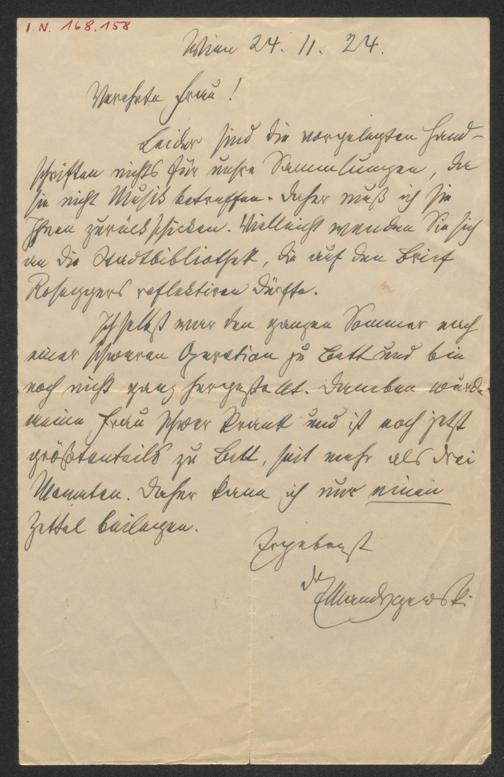 I.N. 168.158
Wien 24. 11. 24.
Verehrte Frau!
Leider sind die vorgelegten Hand-
schriften nichts für unsre Sammlungen, da
sie nicht Musik betreffen. Daher muß ich sie
Ihnen zurückschicken. Vielleicht wenden Sie sich
an die Stadtbibliothek, die auf den Brief
Roseggers reflektiren dürfte.
Ich selbst war den ganzen Sommer nach
einer schweren Operation zu Bett und bin
noch nicht ganz hergestellt. Daneben wurde
meine Frau schwer krank und ist noch jetzt
größtenteils zu Bett, seit mehr als drei
Monaten. Daher kann ich nur einen
Zettel beilegen.
Ergebenst
Mandyczewski